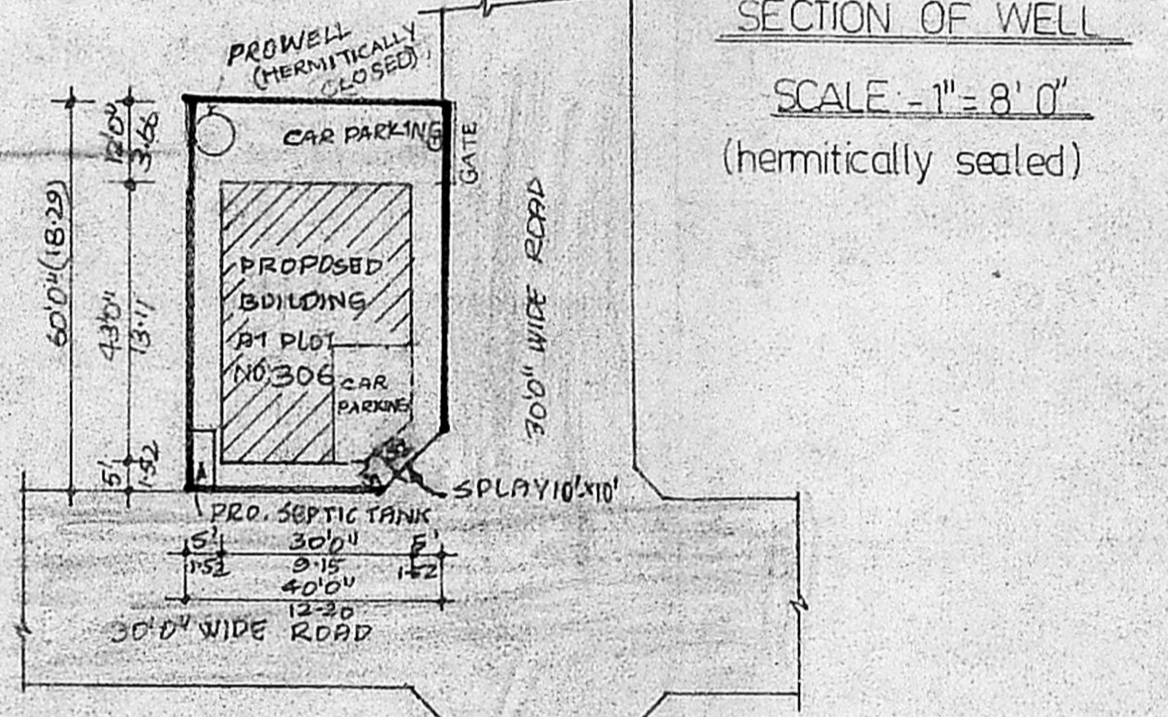 SECTION OF WELL
SCALE - 1" = 8' 0"
(hermitically sealed)
PRO WELL
(HERMITICALLY
CLOSED)
CAR PARKING
GATE
12'0"
3.66
60'0" (18.29)
43'0"
13.11
5'
1.52
PROPOSED
BUILDING
AT PLOT
NO, 306
CAR
PARKING
30'0" WIDE ROAD
SPLAY 10'X10'
PRO. SEPTIC TANK
5' 30'0" 5'
1.52 9.15 1.52
40'0"
12.20
30'0" WIDE ROAD